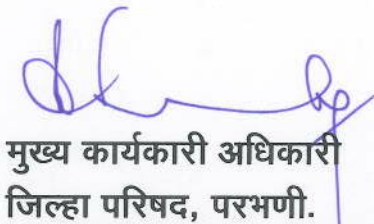 मुख्य कार्यकारी अधिकारी
जिल्हा परिषद, परभणी.